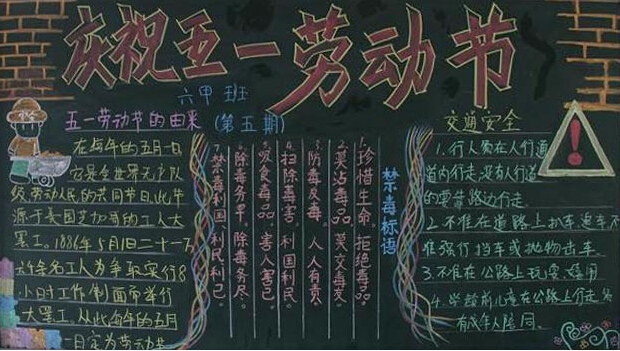 庆祝五一劳动节
六甲班
(第五期)
五一劳动节的由来
在每年的五月一日
它是全世界无产队
级,劳动人民的共同节日,此节
源于美国芝加哥的工人大
罢工。1886年5月1日二十一万
六千余名工人为争取实行8
小时工作制而举行
大罢工。从此每年的五月
一日定为劳动节
禁毒标语
1.珍惜生命。拒绝毒品。
2.莫沾毒品。莫交毒友。
3.防毒反毒。人人有责。
4.扫除毒害。利国利民。
5.吸食毒品。害人害己。
6.除毒务早。除毒务尽。
7.禁毒利国。利民利己。
交通安全
1.行人需在人行道
道内行走,没有人行道
的要靠路边行走。
2.不准在道路上扒车、追车,不
准强行挡车或抛物击车。
3.不准在公路上玩耍、嬉闹
4.学龄前儿童在公路上行走必
有成年人陪同。